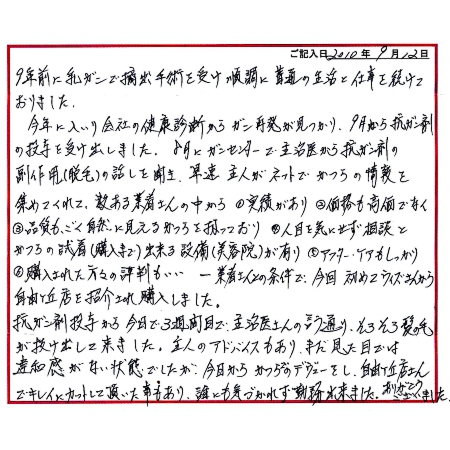 ご記入日 2010年 9月12日
9年前に乳ガンで摘出手術を受け順調に普通の生活と仕事を続けて
おりました。
今年に入り会社の健康診断からガン再発が見つかり、9月から抗ガン剤
の投与を受け出しました。8月にガンセンターで主治医から抗ガン剤の
副作用(脱毛)の話しを聞き、早速主人がネットでかつらの情報を
集めてくれて、数ある業者さんの中から ①実績があり ②価格も高価でなく
③品質もごく自然に見えるかつらを扱っており ④人目を気にせず相談と
かつらの試着(購入まで)出来る設備(美容院)が有り ⑤アフターケアもしっかり
⑥購入された方々の評判も・・・ 業者さんの条件で、今回初めてワイズさんから
自由が丘店を紹介され購入しました。
抗ガン剤投与から今日で3週間目で、主治医さんの言う通り、そろそろ髪の毛
が抜け出して来ました。主人のアドバイスもあり、まだ見た目では
違和感がない状態でしたが、今日からかつらデヴューをし、自由が丘店さん
でキレイにカットして頂いた事もあり、誰にも気づかれず勤務出来ました。ありがとうございました。